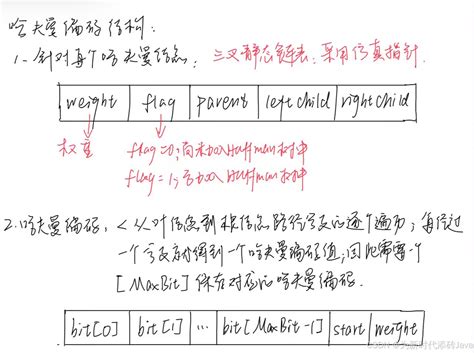 哈夫曼编码结构:
1. 针对每个哈夫曼结点, 三叉静态链表, 采用仿真指针.
weight flag parent leftchild rightchild
权重 flag=0; 尚未加入Huffman树中
flag=1; 已加入Huffman树中
2. 哈夫曼编码, <从叶结点到根结点路径分支的逐个遍历; 每经过
一个分支就得到一个哈夫曼编码值; 因此需要一个
[MaxBit] 保存对应的哈夫曼编码.
bit[0] bit[1] ... bit[MaxBit-1] start weight